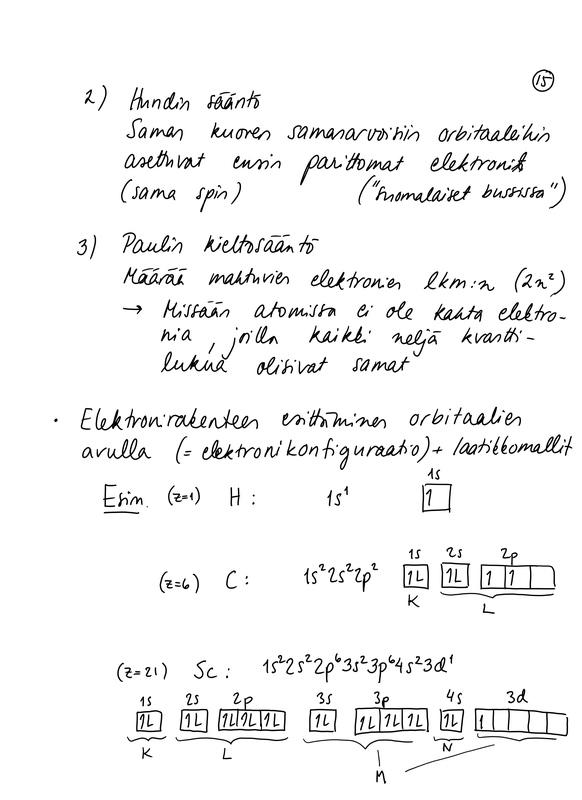 15
2) Hundin sääntö
Saman kuoren samanarvoisiin orbitaaleihin
asettuvat ensin parittomat elektronit
(sama spin) ("suomalaiset bussissa")
3) Paulin kieltosääntö
Määrää mahtuvien elektronien lkm:n (2n²)
→ Missään atomissa ei ole kahta elektro-
nia, joilla kaikki neljä kvantti-
lukua olisivat samat
• Elektronirakenteen esittäminen orbitaalien
avulla (= elektronikonfiguraatio) + laatikkomallit
1s
Esim. (z=1) H: 1s¹ 1
1s 2s 2p
(z=6) C: 1s²2s²2p² 1L 1L 1 1
K L
(z=21) Sc: 1s²2s²2p⁶3s²3p⁶4s²3d¹
1s 2s 2p 3s 3p 4s 3d
1L 1L 1L 1L 1L 1L 1L 1L 1L 1L 1
K L N
M